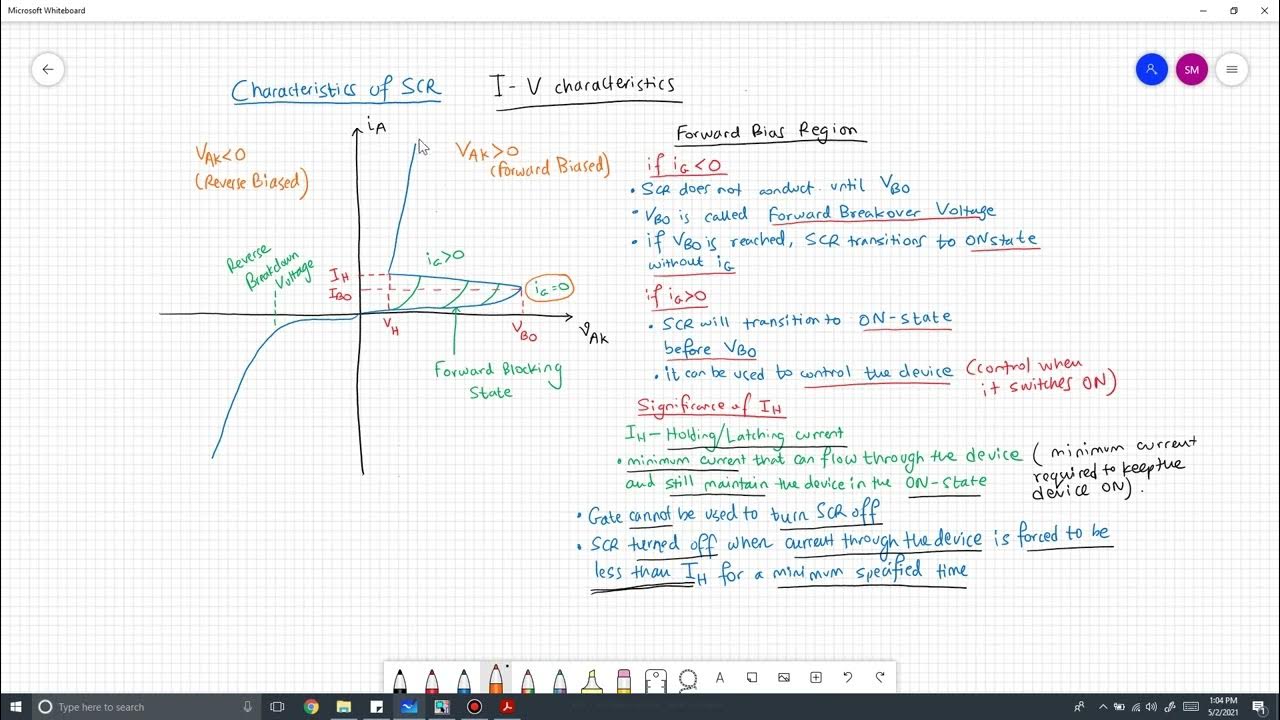 Microsoft Whiteboard
SM
Characteristics of SCR
I-V characteristics
iA
VAK<0
(Reverse Biased)
VAK>0
(Forward Biased)
Reverse
Breakdown
Voltage
iG>0
IH
IBO
iG=0
VH
VBO
VAK
Forward Blocking
State
Forward Bias Region
if iG<0
• SCR does not conduct until VBO
• VBO is called Forward Breakover Voltage
• if VBO is reached, SCR transitions to ON state
without iG
if iG>0
• SCR will transition to ON-state
before VBO
• it can be used to control the device (control when
it switches ON)
Significance of IH
IH - Holding/Latching current
• minimum current that can flow through the device
and still maintain the device in the ON-state
(minimum current
required to keep the
device ON).
• Gate cannot be used to turn SCR off
• SCR turned off when current through the device is forced to be
less than IH for a minimum specified time
Type here to search
1:04 PM
5/2/2021